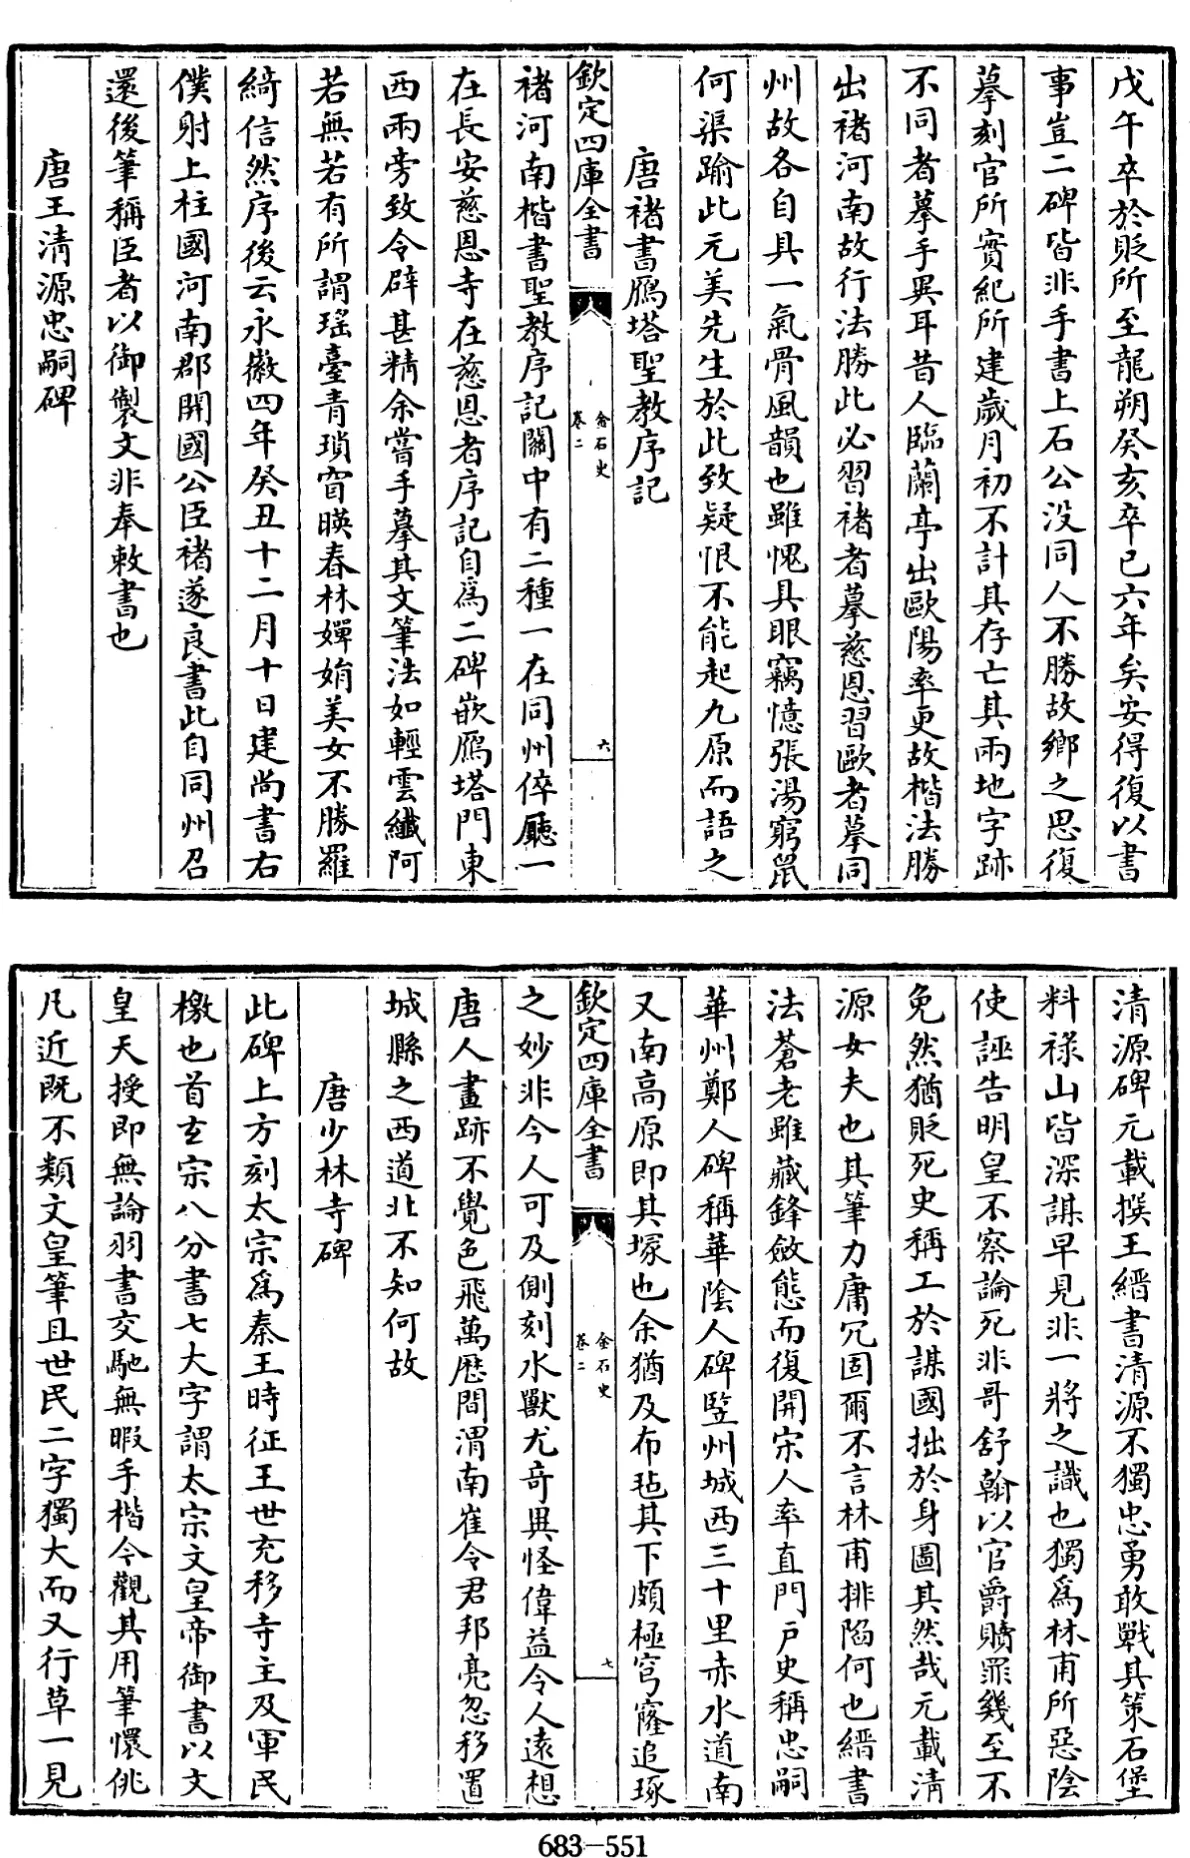 戊午卒於貶所至龍朔癸亥卒已六年矣安得復以書
事豈二碑皆非手書上石公没同人不勝故鄉之思復
摹刻官所實紀所建歲月初不計其存亡其兩地字跡
不同者摹手異耳昔人臨蘭亭出歐陽率更故楷法勝
出褚河南故行法勝此必習褚者摹慈恩習歐者摹同
州故各自具一氣骨風韻也雖愧具眼竊憶張湯窮鼠
何渠踰此元美先生於此致疑恨不能起九原而語之
唐褚書鴈塔聖教序記
欽定四庫全書
金石史
卷二
六
褚河南楷書聖教序記關中有二種一在同州倅廳一
在長安慈恩寺在慈恩者序記自爲二碑嵌鴈塔門東
西兩旁致令辟甚精余嘗手摹其文筆法如輕雲纖阿
若無若有所謂瑶臺青瑣窅暎春林嬋娟美女不勝羅
綺信然序後云永徽四年癸丑十二月十日建尚書右
僕射上柱國河南郡開國公臣褚遂良書此自同州召
還後筆稱臣者以御製文非奉敕書也
唐王清源忠嗣碑
清源碑元載撰王縉書清源不獨忠勇敢戰其策石堡
料祿山皆深謀早見非一將之識也獨爲林甫所惡陰
使誣告明皇不察論死非哥舒翰以官爵贖罪幾至不
免然猶貶死史稱工於謀國拙於身圖其然哉元載清
源女夫也其筆力庸冗固爾不言林甫排陷何也縉書
法蒼老雖藏鋒斂態而復開宋人率直門戶史稱忠嗣
華州鄭人碑稱華陰人碑豎州城西三十里赤水道南
又南高原即其塚也余猶及布毡其下頗極穹窿追琢
欽定四庫全書
金石史
卷二
七
之妙非今人可及側刻水獸尤奇異怪偉益令人遠想
唐人畫跡不覺色飛萬厯間渭南崔令君邦亮忽移置
城縣之西道北不知何故
唐少林寺碑
此碑上方刻太宗爲秦王時征王世充移寺主及軍民
檄也首玄宗八分書七大字謂太宗文皇帝御書以文
皇天授即無論羽書交馳無暇手楷今觀其用筆懷佻
凡近既不類文皇筆且世民二字獨大而又行草一見
683-551